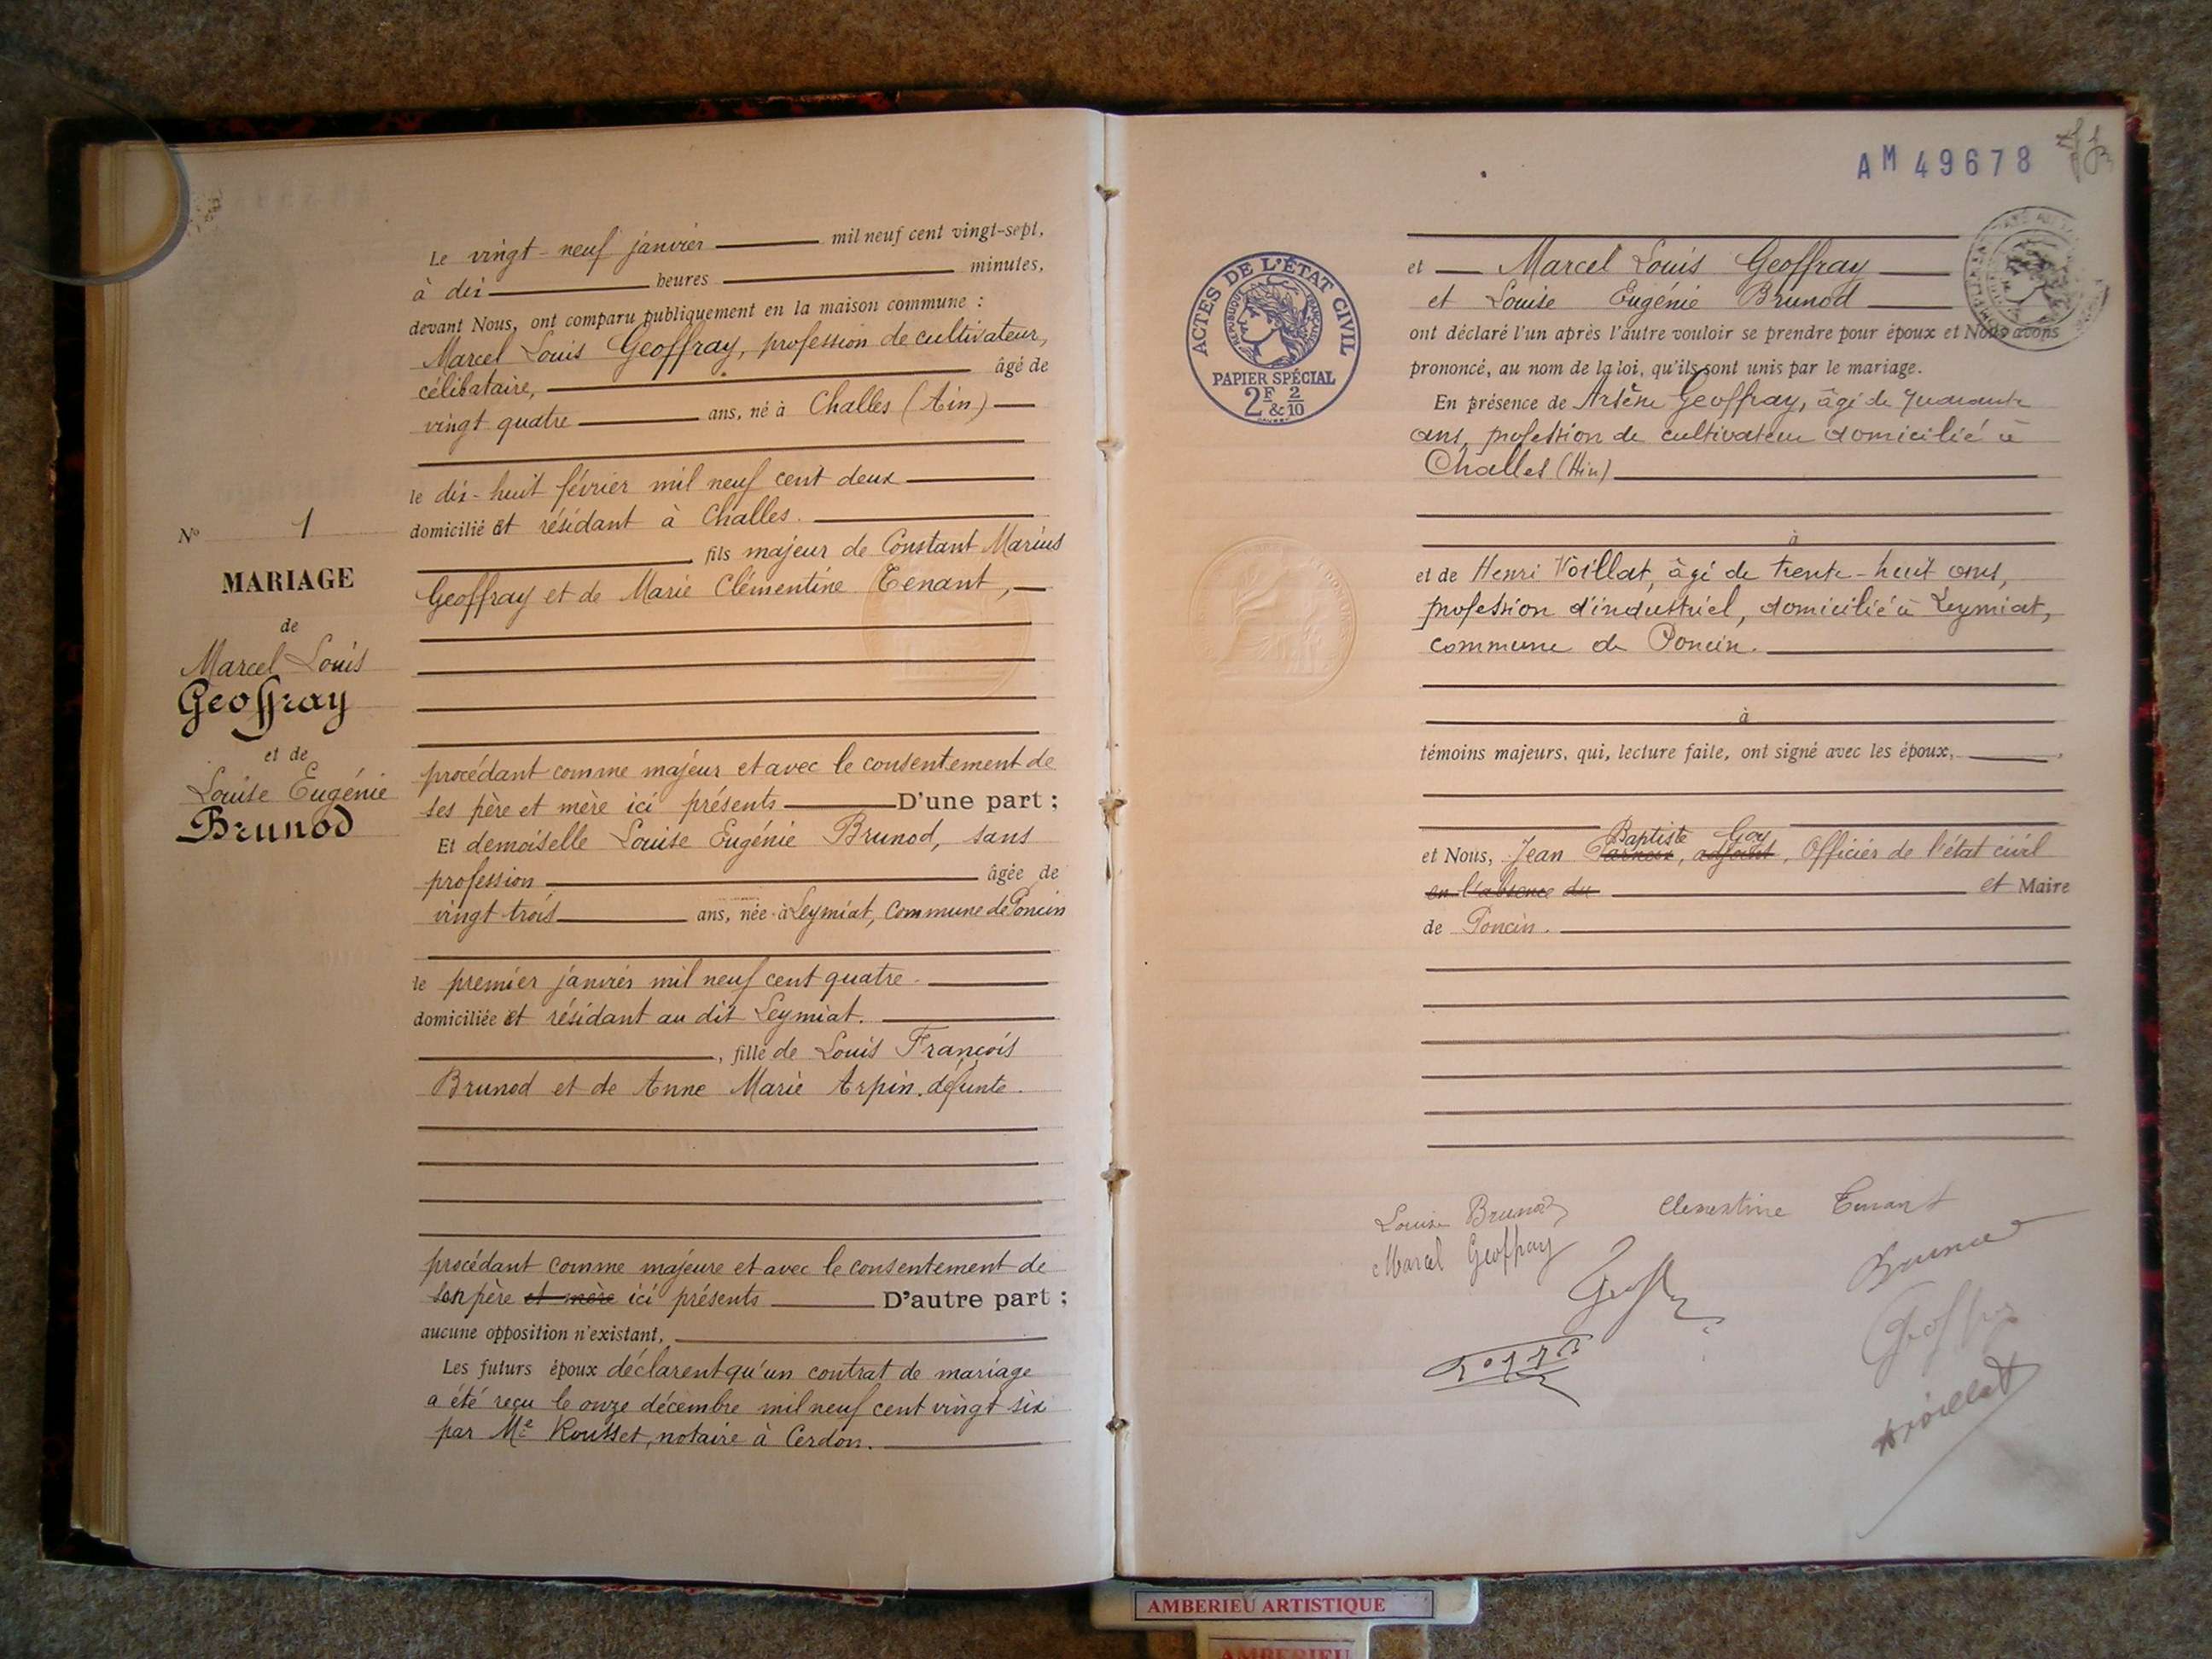 Le vingt-neuf janvier mil neuf cent vingt-sept,
à dix heures minutes,
devant Nous, ont comparu publiquement en la maison commune :
Marcel Louis Geoffray, profession de cultivateur,
célibataire, âgé de
vingt quatre ans, né à Challes (Ain)
le dix-huit février mil neuf cent deux
domicilié et résidant à Challes.
fils majeur de Constant Marius
Geoffray et de Marie Clémentine Tenant,
procédant comme majeur et avec le consentement de
ses père et mère ici présents D'une part ;
Et demoiselle Louise Eugénie Brunod, sans
profession âgée de
vingt trois ans, née à Leymiat, commune de Poncin
le premier janvier mil neuf cent quatre.
domiciliée et résidant au dit Leymiat.
, fille de Louis François
Brunod et de Anne Marie Arpin. défunte.
procédant comme majeure et avec le consentement de
son père et mère ici présents D'autre part ;
aucune opposition n'existant,
Les futurs époux déclarent qu'un contrat de mariage
a été reçu le onze décembre mil neuf cent vingt six
par Me Rousset, notaire à Cerdon.
N° 1
MARIAGE
de
Marcel Louis
Geoffray
et de
Louise Eugénie
Brunod
AM 49678
ACTES DE L'ÉTAT CIVIL
RÉPUBLIQUE FRANÇAISE
PAPIER SPÉCIAL
2F & 2/10
et Marcel Louis Geoffray
et Louise Eugénie Brunod
ont déclaré l'un après l'autre vouloir se prendre pour époux et Nous avons
prononcé, au nom de la loi, qu'ils sont unis par le mariage.
En présence de Arsène Geoffray, âgé de quarante
ans, profession de cultivateur domicilié à
Challes (Ain)
à
et de Henri Voillat, âgé de trente-huit ans,
profession d'industriel, domicilié à Leymiat,
commune de Poncin.
à
témoins majeurs, qui, lecture faite, ont signé avec les époux,
Baptiste Goy
et Nous, Jean , adjoint, Officier de l'état civil
en l'absence du et Maire
de Poncin.
Louise Brunod Clementine Tenant
Marcel Geoffray
Brunod
Geoffray
Voillat
AMBERIEU ARTISTIQUE
AMBERIEU